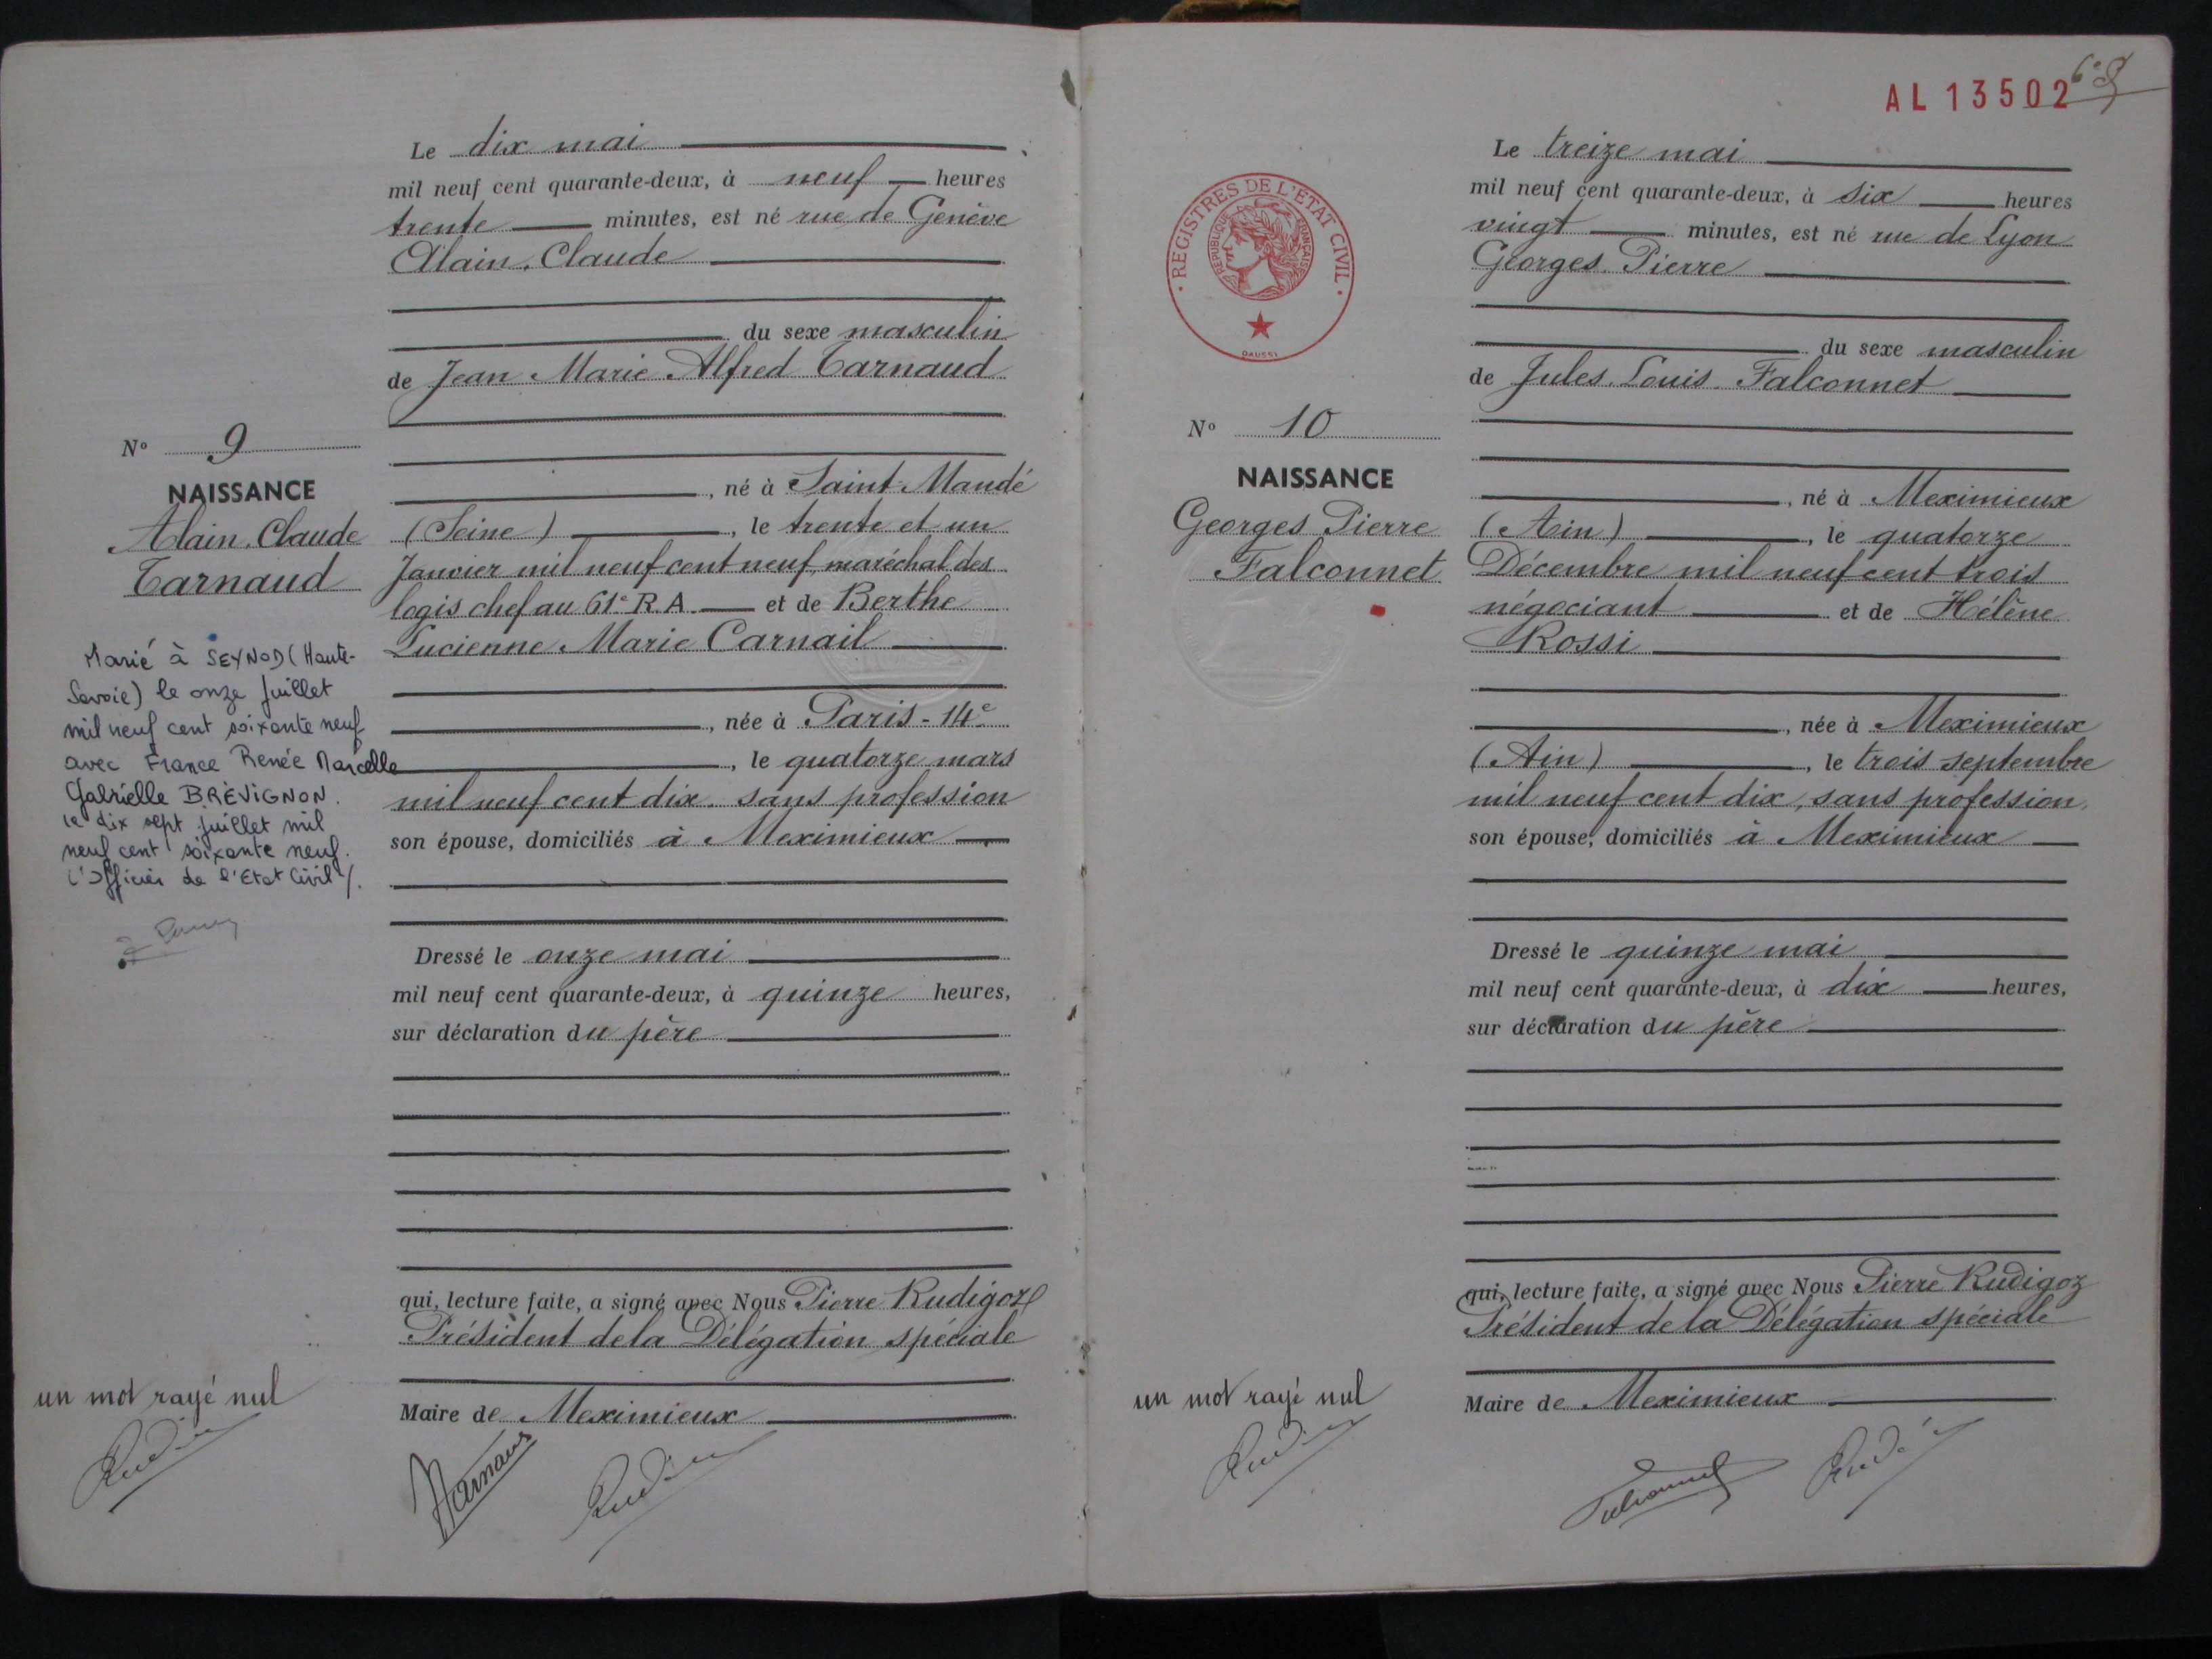 Le dix mai
mil neuf cent quarante-deux, à neuf heures
trente minutes, est né rue de Genève
Alain, Claude
du sexe masculin
de Jean Marie Alfred Tarnaud
N° 9
NAISSANCE
Alain, Claude
Tarnaud
, né à Saint-Mandé
(Seine) , le trente et un
Janvier mil neuf cent neuf, maréchal des
logis chef au 61e R.A. et de Berthe
Lucienne Marie Carnail
, née à Paris-14e
, le quatorze mars
mil neuf cent dix, sans profession
son épouse, domiciliés à Meximieux
Marié à SEYNOD (Haute-
Savoie) le onze Juillet
mil neuf cent soixante neuf
avec France Renée Marcelle
Gabrielle BRÉVIGNON.
le dix sept juillet mil
neuf cent soixante neuf.
L'Officier de l'Etat Civil /.
Dressé le onze mai
mil neuf cent quarante-deux, à quinze heures,
sur déclaration du père
qui, lecture faite, a signé avec Nous Pierre Rudigoz
Président de la Délégation spéciale
Maire de Meximieux
un mot rayé nul
AL 13502
REGISTRES DE L'ÉTAT CIVIL
RÉPUBLIQUE FRANÇAISE
DAUSSY
Le treize mai
mil neuf cent quarante-deux, à six heures
vingt minutes, est né rue de Lyon
Georges, Pierre
du sexe masculin
de Jules, Louis Falconnet
N° 10
NAISSANCE
Georges Pierre
Falconnet
, né à Meximieux
(Ain) , le quatorze
Décembre mil neuf cent trois
négociant et de Hélène
Rossi
, née à Meximieux
(Ain) , le trois septembre
mil neuf cent dix, sans profession,
son épouse, domiciliés à Meximieux
Dressé le quinze mai
mil neuf cent quarante-deux, à dix heures,
sur déclaration du père
qui, lecture faite, a signé avec Nous Pierre Rudigoz
Président de la Délégation spéciale
Maire de Meximieux
un mot rayé nul